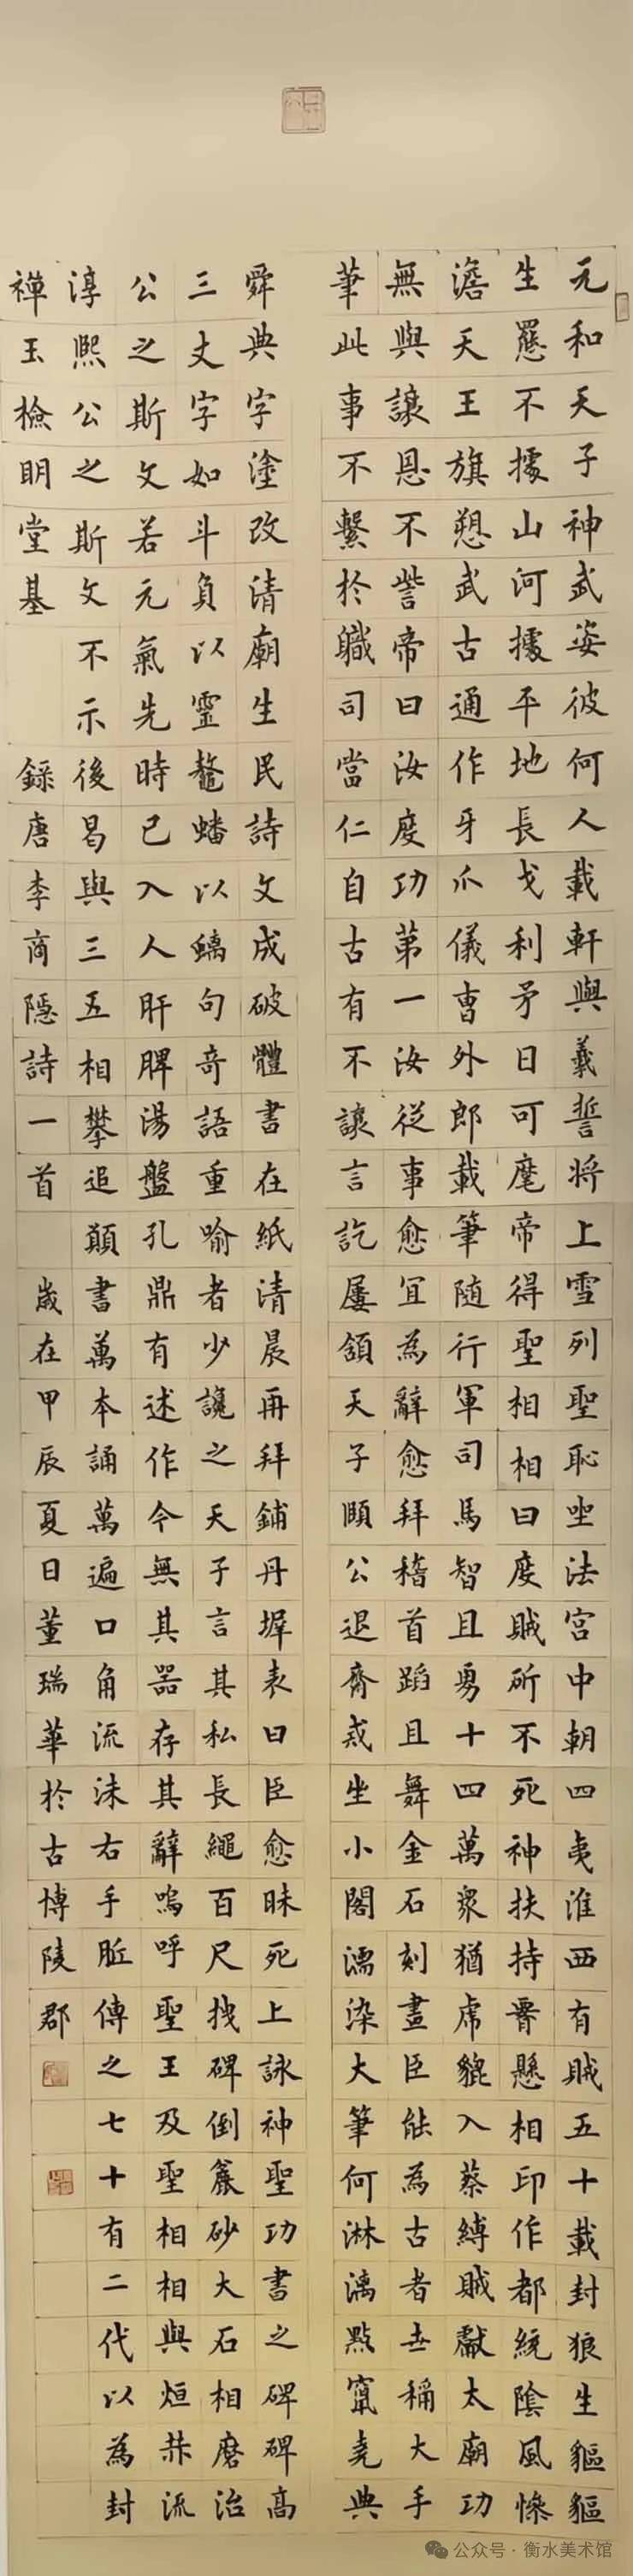 元和天子神武姿彼何人載軒與羲誓將上雪列聖恥坐法宮中朝四夷淮西有賊五十載封狼生貙貙
生羆不據山河據平地長戈利矛日可麾帝得聖相相曰度賊斫不死神扶持腰懸相印作都統陰風慘
澹天王旗愬武古通作牙爪儀曹外郎載筆随行軍司馬智且勇十四萬眾猶虎貔入蔡縛賊獻太廟功
無與讓恩不訾帝曰汝度功第一汝從事愈宜為辭愈拜稽首蹈且舞金石刻畫臣能為古者世稱大手
筆此事不繫於職司當仁自古有不讓言訖屢頷天子頤公退齋戒坐小閣濡染大筆何淋漓點竄堯典
舜典字塗改清廟生民詩文成破體書在紙清晨再拜鋪丹墀表曰臣愈昧死上詠神聖功書之碑碑高
三丈字如斗負以靈鼇蟠以螭句奇語重喻者少讒之天子言其私長繩百尺拽碑倒麤砂大石相磨治
公之斯文若元氣先時已入人肝脾湯盤孔鼎有述作今無其器存其辭嗚呼聖王及聖相相與烜赫流
淳熙公之斯文不示後曷與三五相攀追願書萬本誦萬遍口角流沫右手胝傳之七十有二代以為封
禪玉檢眀堂基 錄唐李商隱詩一首 歲在甲辰夏日董瑞華於古博陵郡
公众号 · 衡水美术馆